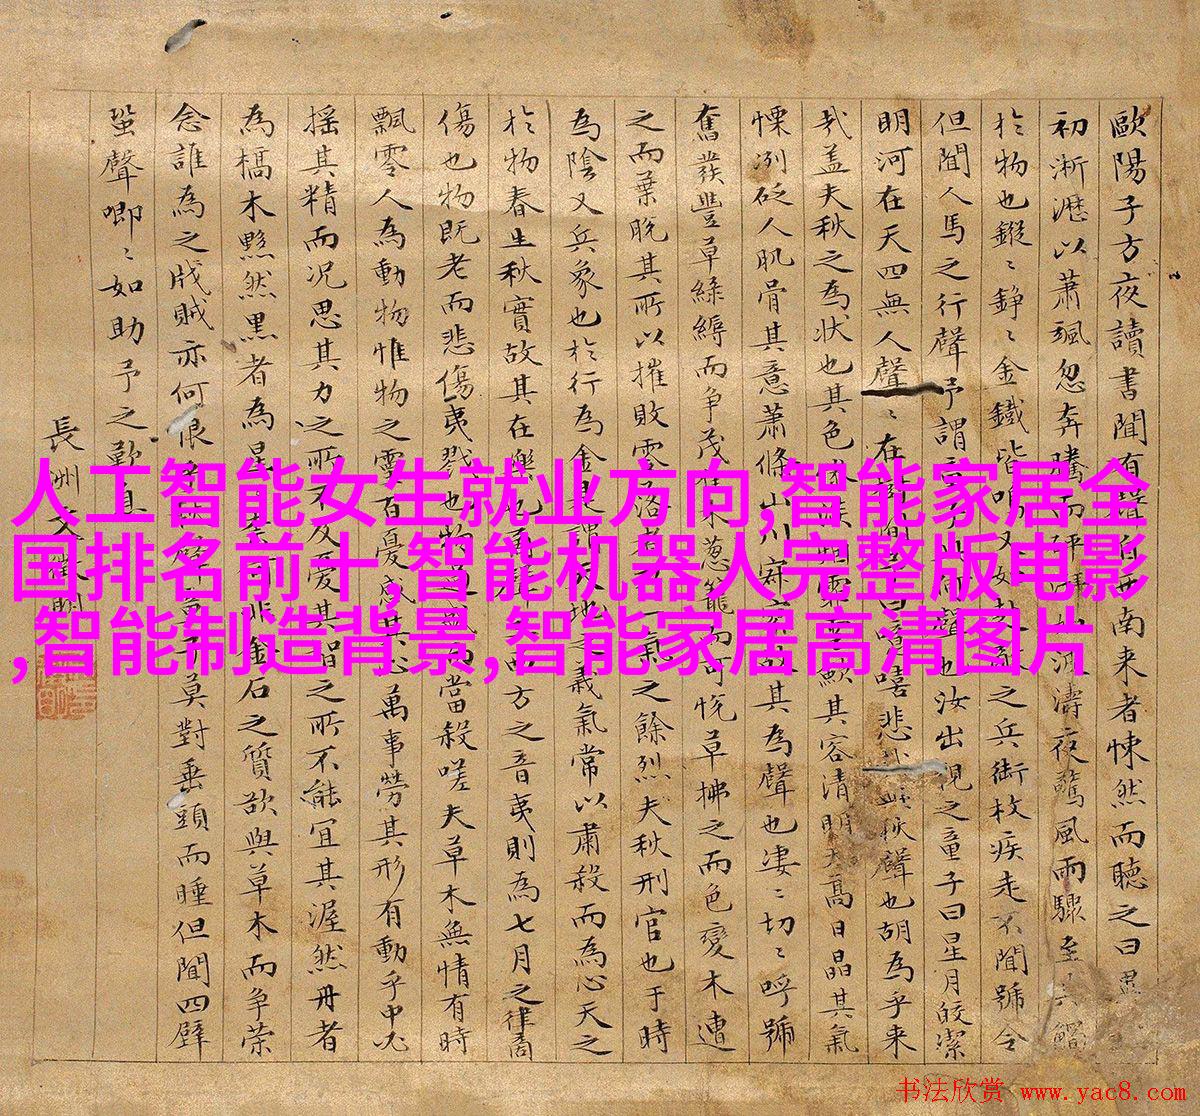 歐陽子方夜讀書聞有聲自西南来者悚然而聽之曰異
初淅瀝以蕭颯忽奔騰而砰湃如波濤夜驚風雨驟至其觸
於物也鏦〻錚〻金鐵皆鳴又如赴敵之兵銜枚疾走不聞號令
但聞人馬之行聲予謂童子此何聲也汝出視之童子曰星月皎潔
明河在天四無人聲〻在樹間予曰噫嘻悲哉此秋聲也胡為乎来
哉盖夫秋之為状也其色慘淡烟霏雲歛其容清明天高日晶其氣
慄冽砭人肌骨其意蕭條山川寂寥故其為聲也凄〻切〻呼號
奮發豐草綠縟而争茂佳木葱籠而可悅草拂之而色變木遭
之而葉脫其所以摧敗零落者乃一氣之餘烈夫秋刑官也于時
為陰又兵象也於行為金是謂天地之義氣常以肅殺而為心天之
於物春生秋實故其在樂也商聲主西方之音夷則為七月之律商
傷也物既老而悲傷夷戮也物過盛而當殺嗟夫草木無情有時
飄零人為動物惟物之靈百憂感其心萬事勞其形有動乎中必
摇其精而况思其力之所不及憂其智之所不能宜其渥然丹者
為槁木黟然黑者為星〻奈何非金石之質欲與草木而争荣
念誰為之戕賊亦何恨乎秋聲童子莫對垂頭而睡但聞四壁
蛩聲唧〻如助予之歎息
長洲文徵明
人工智能女生就业方向,智能家居全
国排名前十,智能机器人完整版电影
,智能制造背景,智能家居高清图片
书法欣赏 www.yac8.com